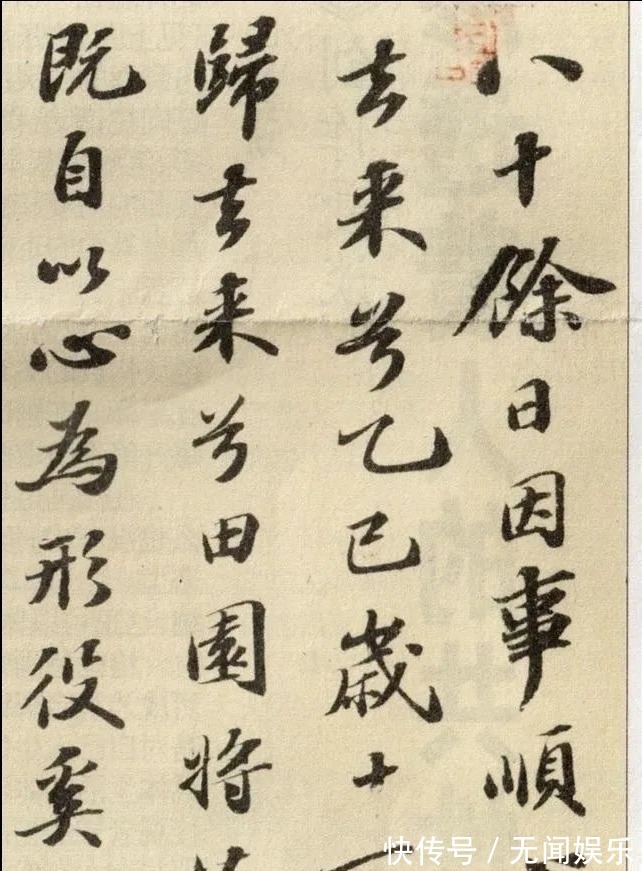 八十餘日因事順
去来兮乙巳歲十
歸去来兮田園將
既自以心為形役奚
快传号 / 无闻娱乐